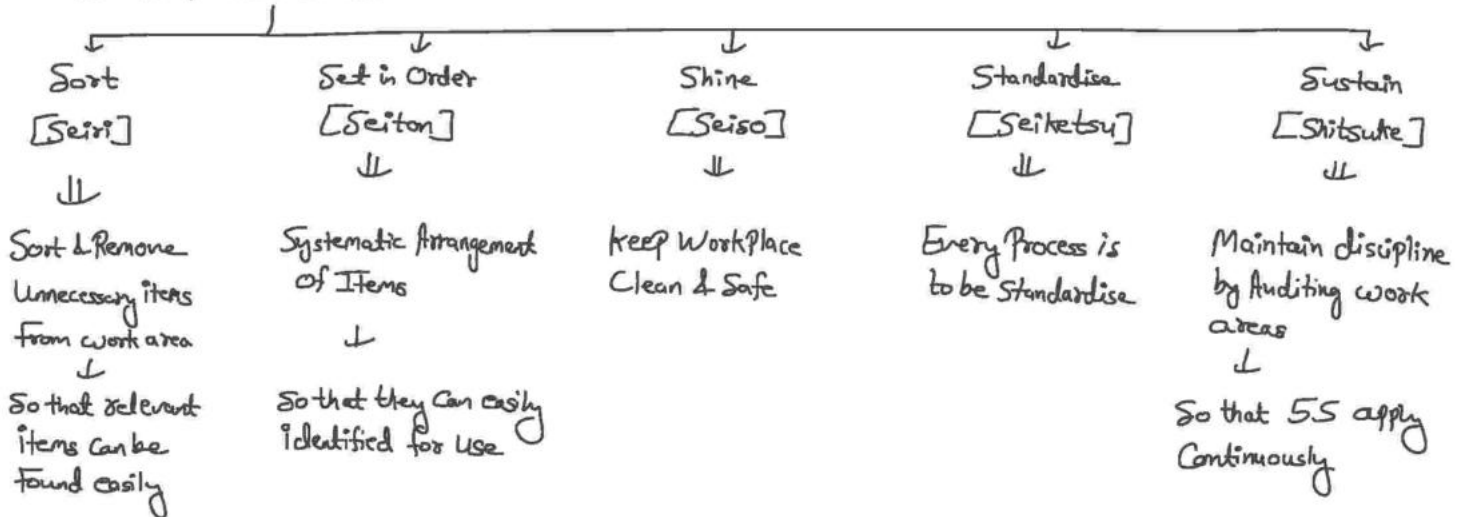 Sort
[Seiri]
Sort & Remove
Unnecessary items
From work area
So that relevant
items can be
Found easily
Set in Order
[Seiton]
Systematic Arrangement
Of Items
So that they Can easily
identified for use
Shine
[Seiso]
Keep WorkPlace
Clean & Safe
Standardise
[Seiketsu]
Every Process is
to be Standardise
Sustain
[Shitsuke]
Maintain discipline
by Auditing work
areas
So that 5S apply
Continuously